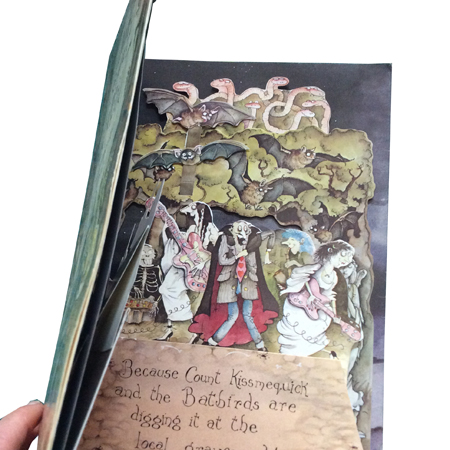 Because Count Kissmequick
and the Batbirds are
digging it at the
local